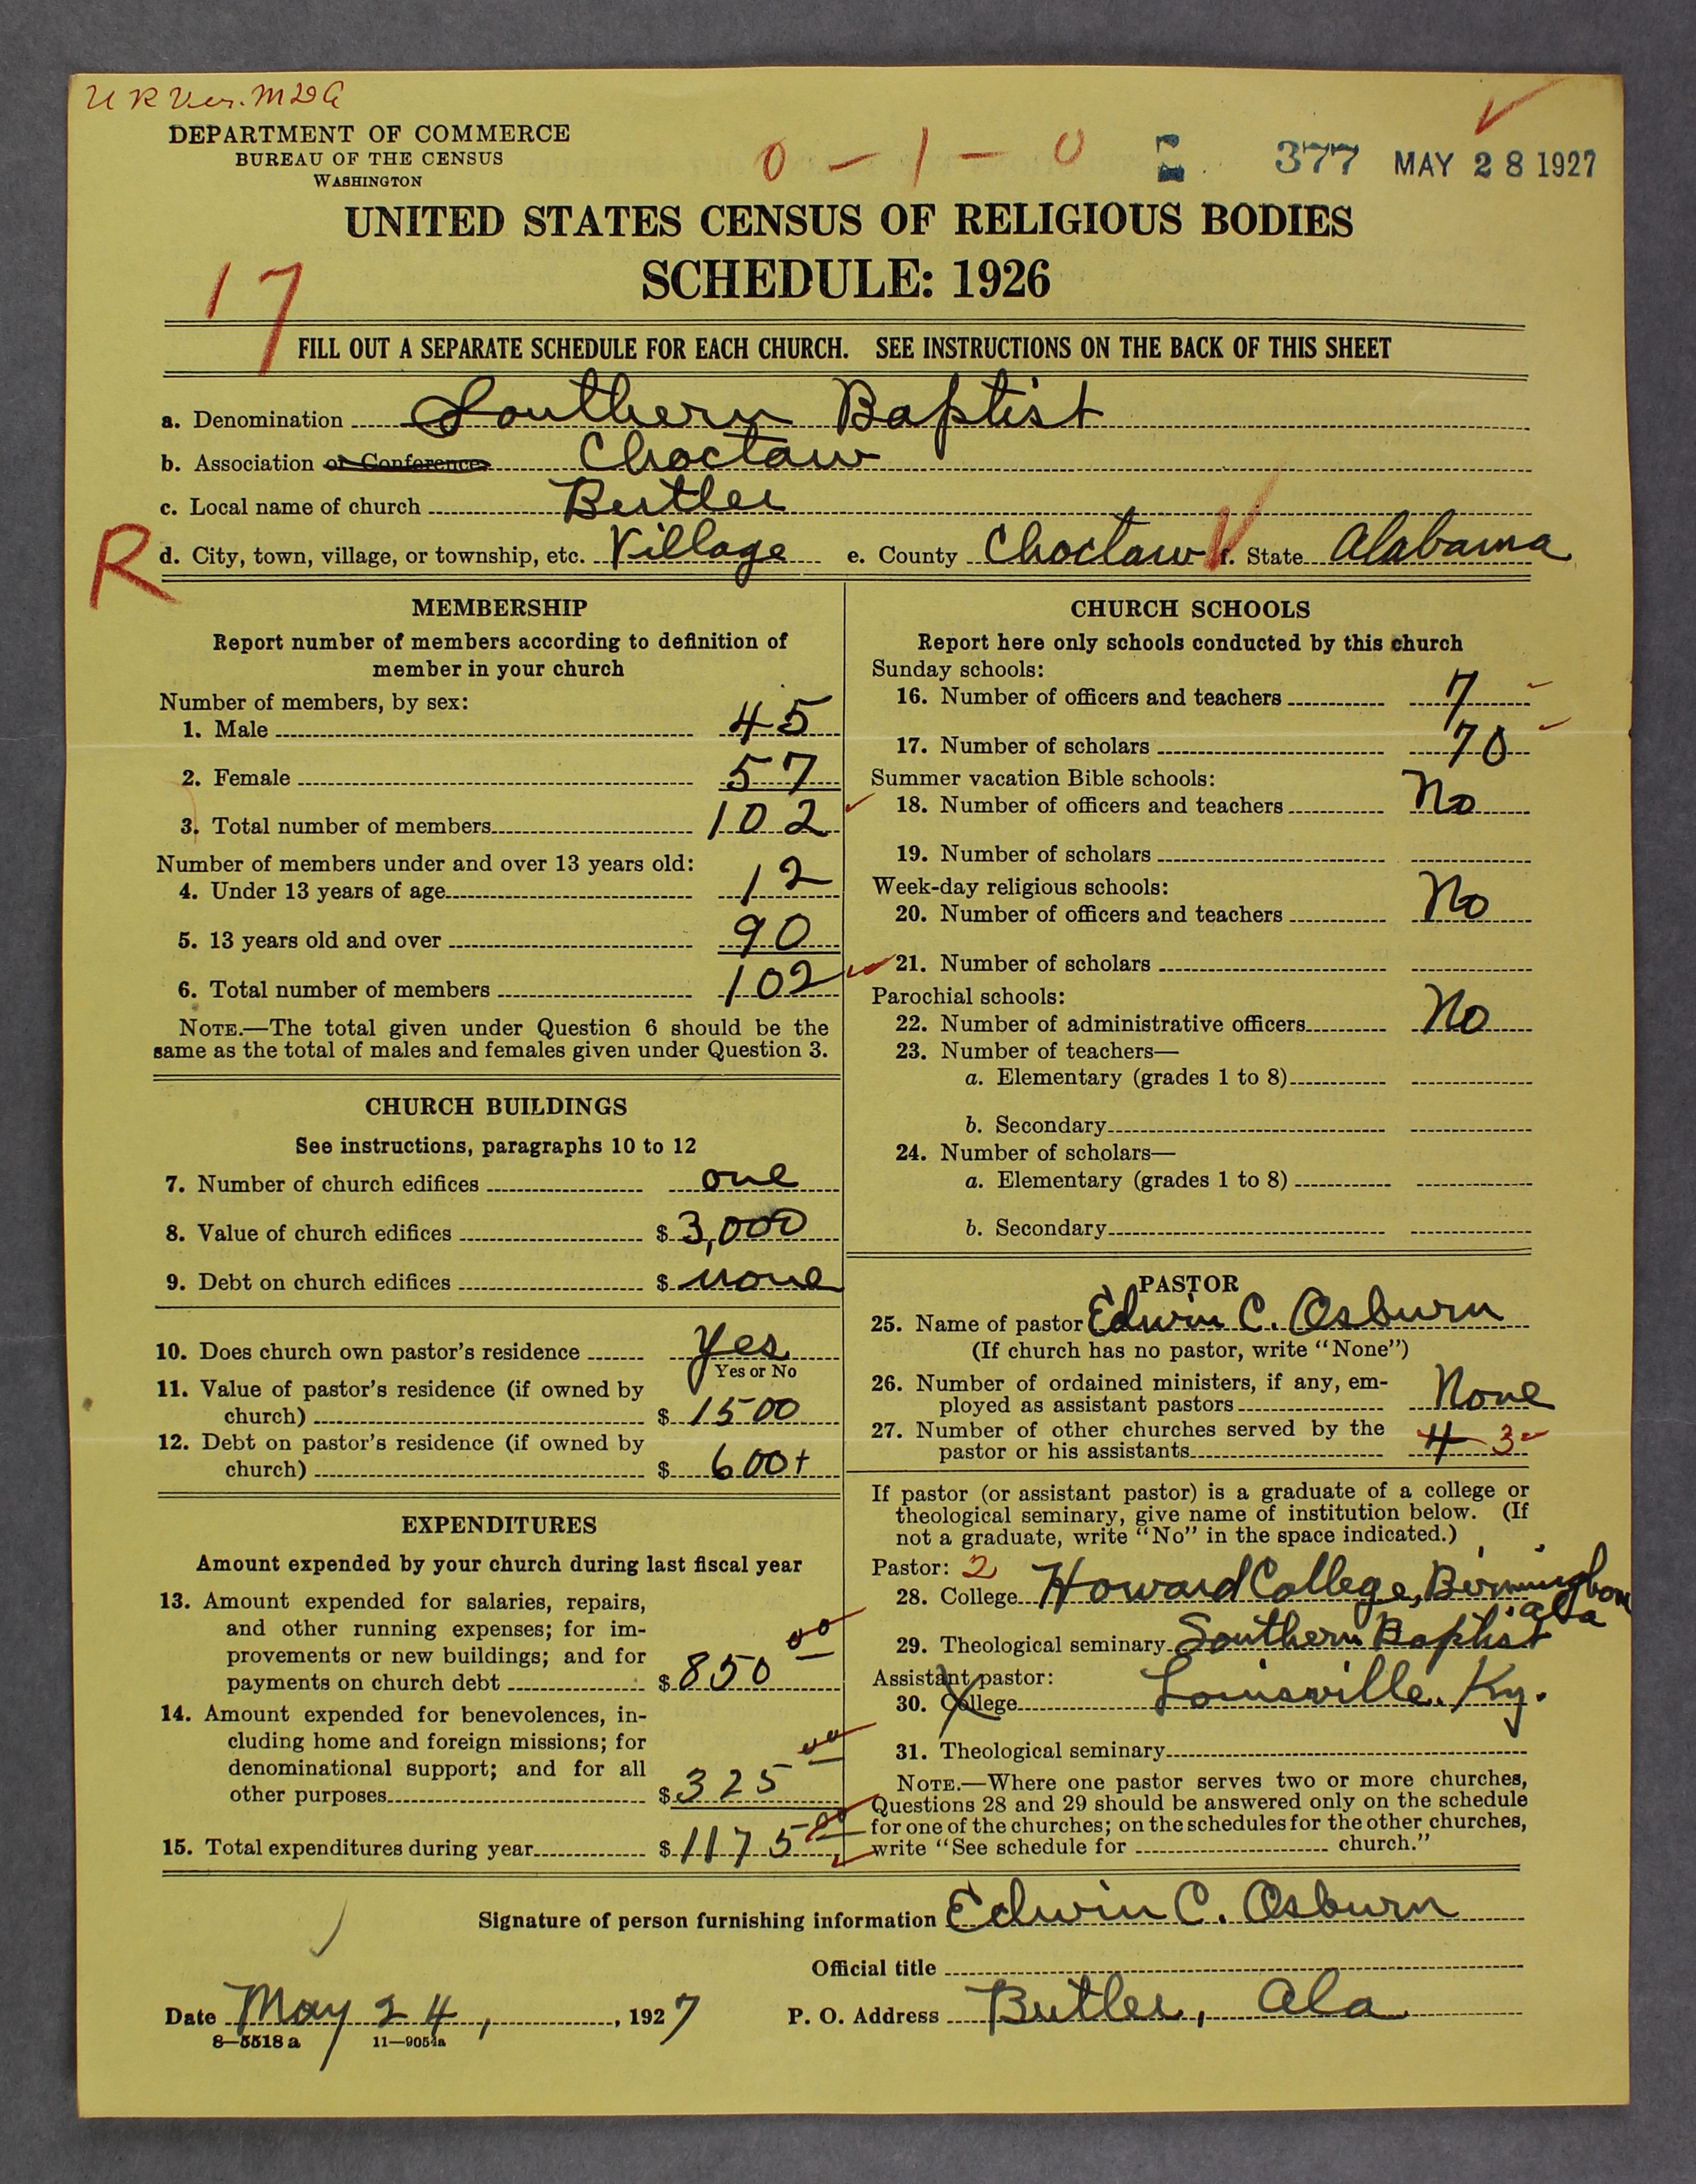 U R Ver. M D G
DEPARTMENT OF COMMERCE
BUREAU OF THE CENSUS
WASHINGTON
0 - 1 - 0 377 MAY 28 1927
UNITED STATES CENSUS OF RELIGIOUS BODIES
SCHEDULE: 1926
17
FILL OUT A SEPARATE SCHEDULE FOR EACH CHURCH. SEE INSTRUCTIONS ON THE BACK OF THIS SHEET
a. Denomination Southern Baptist
b. Association or Conference Choctaw
c. Local name of church Butler
R d. City, town, village, or township, etc. Village e. County Choctaw f. State Alabama
MEMBERSHIP
Report number of members according to definition of
member in your church
Number of members, by sex:
1. Male 45
2. Female 57
3. Total number of members 102
Number of members under and over 13 years old:
4. Under 13 years of age 12
5. 13 years old and over 90
6. Total number of members 102
NOTE.—The total given under Question 6 should be the
same as the total of males and females given under Question 3.
CHURCH BUILDINGS
See instructions, paragraphs 10 to 12
7. Number of church edifices one
8. Value of church edifices $ 3,000
9. Debt on church edifices $ none
10. Does church own pastor's residence Yes
Yes or No
11. Value of pastor's residence (if owned by
church) $ 1500
12. Debt on pastor's residence (if owned by
church) $ 600+
EXPENDITURES
Amount expended by your church during last fiscal year
13. Amount expended for salaries, repairs,
and other running expenses; for im-
provements or new buildings; and for
payments on church debt $ 850 00
14. Amount expended for benevolences, in-
cluding home and foreign missions; for
denominational support; and for all
other purposes $ 325 00
15. Total expenditures during year $ 1175 00
CHURCH SCHOOLS
Report here only schools conducted by this church
Sunday schools:
16. Number of officers and teachers 7
17. Number of scholars 70
Summer vacation Bible schools:
18. Number of officers and teachers No
19. Number of scholars
Week-day religious schools:
20. Number of officers and teachers No
21. Number of scholars
Parochial schools:
22. Number of administrative officers No
23. Number of teachers—
a. Elementary (grades 1 to 8)
b. Secondary
24. Number of scholars—
a. Elementary (grades 1 to 8)
b. Secondary
PASTOR
25. Name of pastor Edwin C. Osburn
(If church has no pastor, write "None")
26. Number of ordained ministers, if any, em-
ployed as assistant pastors None
27. Number of other churches served by the
pastor or his assistants 4 3
If pastor (or assistant pastor) is a graduate of a college or
theological seminary, give name of institution below. (If
not a graduate, write "No" in the space indicated.)
Pastor: 2
28. College Howard College, Birmingham
Ala
29. Theological seminary Southern Baptist
Assistant pastor:
30. College Louisville, Ky.
31. Theological seminary
NOTE.—Where one pastor serves two or more churches,
Questions 28 and 29 should be answered only on the schedule
for one of the churches; on the schedules for the other churches,
write "See schedule for church."
Signature of person furnishing information Edwin C. Osburn
Official title
Date May 24, , 1927 P. O. Address Butler, Ala
8—5518 a 11—9054a